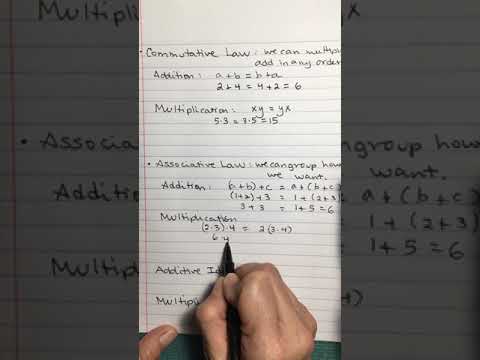 • Commutative Law: we can multip
add in any order
Addition: a+b = b+a
2+4 = 4+2 = 6
Multiplication: xy = yx
5·3 = 3·5 = 15
• Associative Law: we can group how
we want.
Addition: (a+b)+c = a+(b+c)
(1+2)+3 = 1+(2+3)
3+3 = 1+5 = 6
Multiplication
(2·3)·4 = 2(3·4)
6·4
Additive Id
Multipl